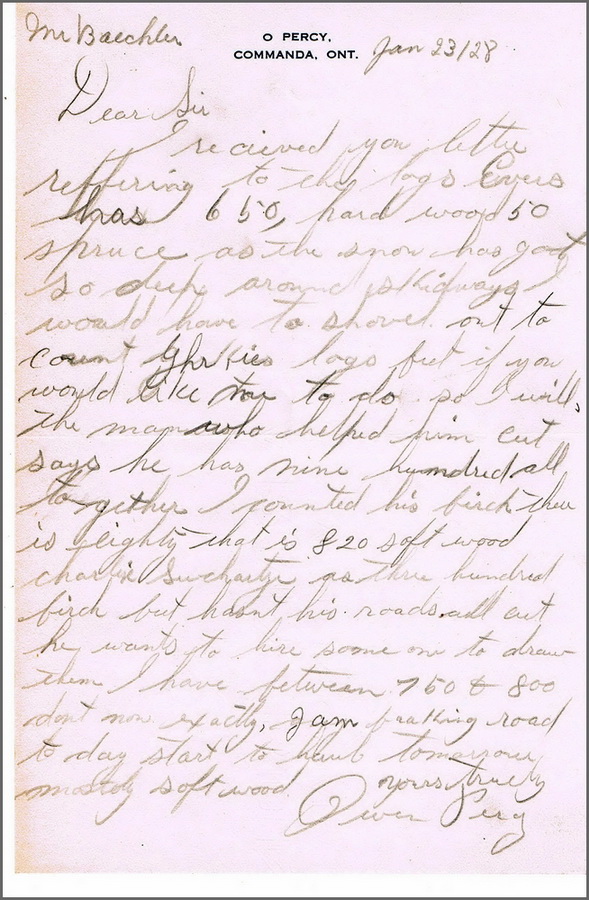 Mr Baechler
O PERCY,
COMMANDA, ONT.
Jan 23/28
Dear Sir
I recieved you letter
reffering to the logs Evers
has 650, hard wood 50
spruce as the snow has got
so deep around skidways I
would have to shovel out to
count logs but if you
would like me to do so I will,
the man who helped him cut
says he has nine hundred all
together I counted his birch their
is eighty that is 820 soft wood
charlie as three hundred
birch but hasnt his roads all cut
he wants to hire some one to draw
them I have between 750 & 800
dont now exactly, I am breaking road
to day start to haul tomorrow
mostly soft wood.
yours truely
Owen Percy